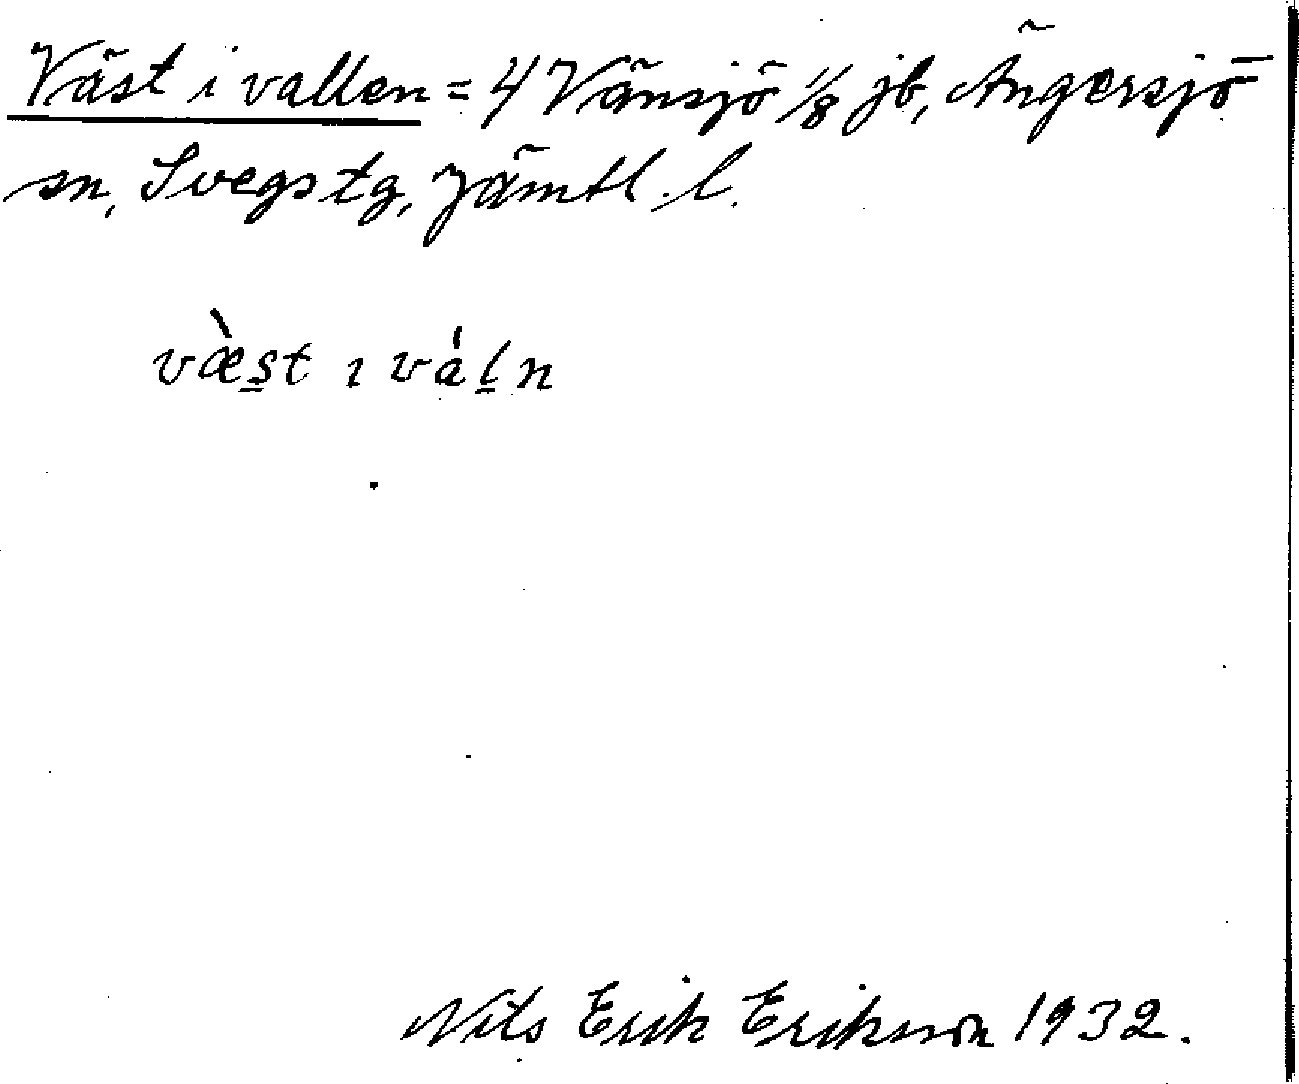 Väst i vallen = 4 Vänsjö 1/8 jb, Ängersjö
sn, Svegs tg, Jämtl. l.
væ̀s̲t ı vál̲n
Nils Erik Erikson 1932.